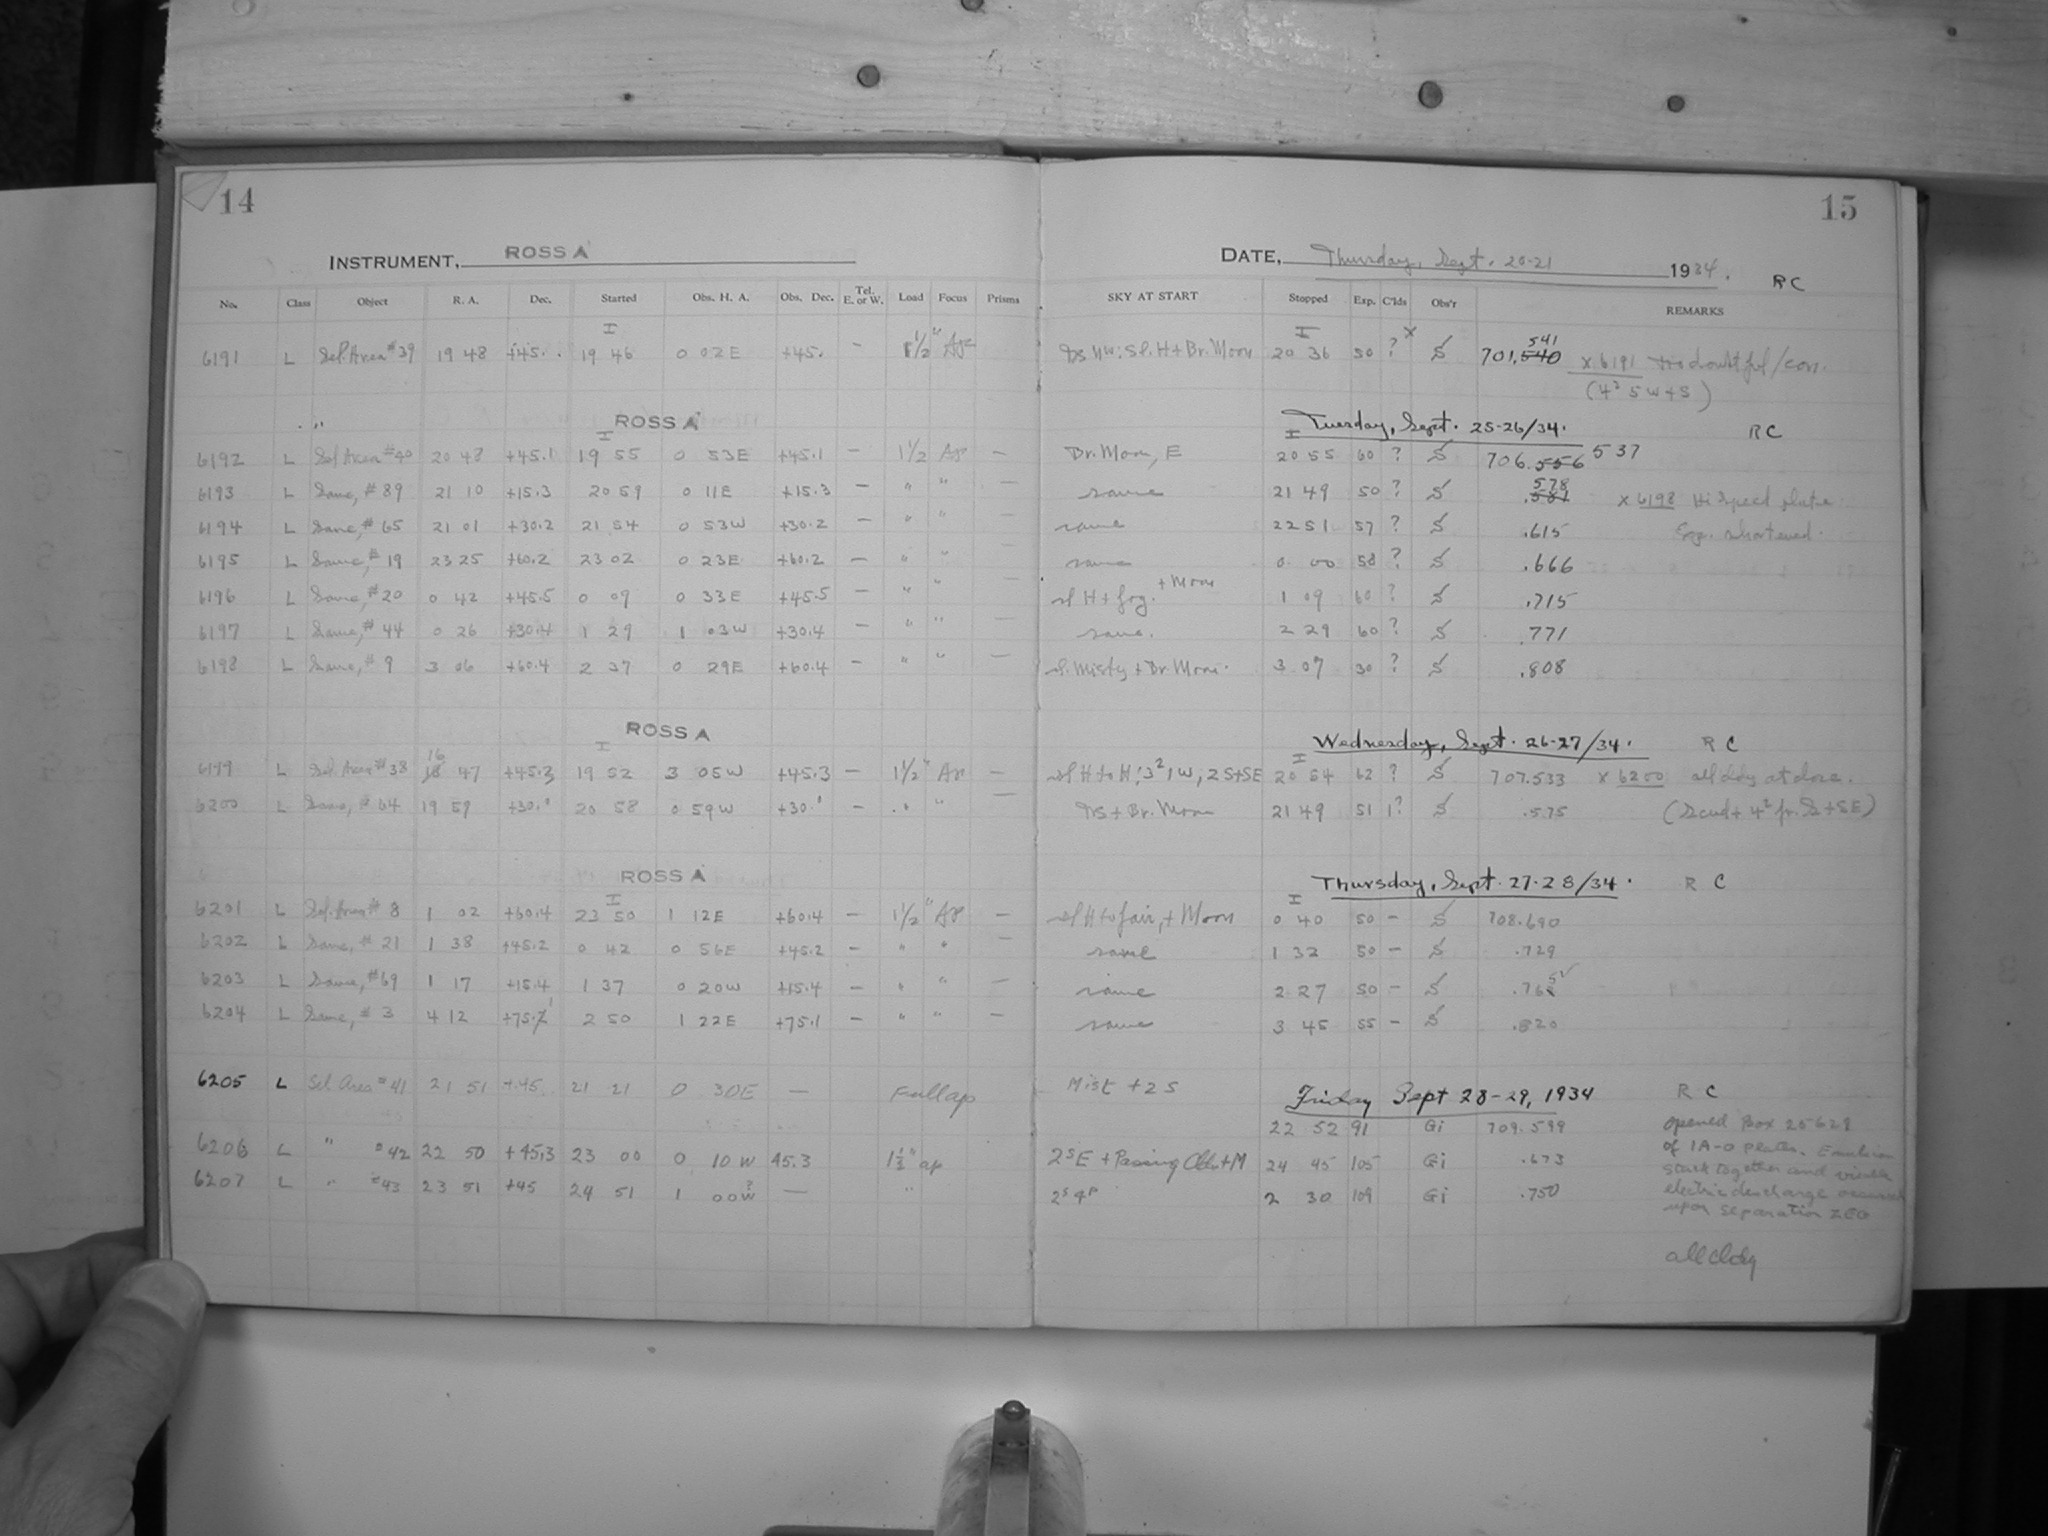 14
15
INSTRUMENT, ROSS A
DATE, Thursday, Sept. 20-21 1934. RC
No. Class Object R. A. Dec. Started Obs. H. A. Obs. Dec. Tel. E. or W. Load Focus Prisms SKY AT START Stopped Exp. C'lds Obs'r REMARKS
I I x 541
6191 L Sel. Area #39 19 48 +45. 19 46 0 02E +45. - 1½" Ap Sl. H + Br. Moon 20 36 50 ? S 701.540 x 6191 doubtful/
(4² 5 W + S)
ROSS A Tuesday, Sept. 25-26/34. RC
I I
6192 L Sel Area #40 20 48 +45.1 19 55 0 53E +45.1 - 1½ Ap - Br. Moon, E 20 55 60 ? S 706.556 537
6193 L Same, #89 21 10 +15.3 20 59 0 11E +15.3 - " " - same 21 49 50 ? S .581 578 x 6198 Hi Speed plate
6194 L Same, #65 21 01 +30.2 21 54 0 53W +30.2 - " " - same 22 51 57 ? S .615 Exp. shortened.
6195 L Same, #19 23 25 +60.2 23 02 0 23E +60.2 - " " - same 0 00 58 ? S .666
6196 L Same, #20 0 42 +45.5 0 09 0 33E +45.5 - " " - sl H + fog. + Moon 1 09 60 ? S .715
6197 L Same, #44 0 26 +30.4 1 29 1 03W +30.4 - " " - same. 2 29 60 ? S .771
6198 L Same, #9 3 06 +60.4 2 37 0 29E +60.4 - " " - sl. Misty + Br Moon. 3 07 30 ? S .808
ROSS A Wednesday, Sept. 26-27/34. RC
I I
6199 L Sel. Area #38 18 16 47 +45.3 19 52 3 05W +45.3 - 1½" Ap - sl H to H; 3² 1 W, 2 S+SE 20 54 62 ? S 707.533 x 6200 all cldy at close.
6200 L Same, #64 19 59 +30.1 20 58 0 59W +30.1 - " " - DS + Br. Moon 21 49 51 1? S .575 (Scud + 4² fr. S + SE)
ROSS A Thursday, Sept. 27-28/34. RC
I I
6201 L Sel. Area #8 1 02 +60.4 23 50 1 12E +60.4 - 1½" Ap - sl H to fair, + Moon 0 40 50 - S 708.690
6202 L Same, #21 1 38 +45.2 0 42 0 56E +45.2 - " " - same 1 32 50 - S .729
6203 L Same, #69 1 17 +15.4 1 37 0 20W +15.4 - " " - same 2 27 50 - S .765
6204 L Same, #3 4 12 +75.1 2 50 1 22E +75.1 - " " - same 3 45 55 - S .820
6205 L Sel Area #41 21 51 +45 21 21 0 30E - Full ap Mist + 2 S Friday Sept 28-29, 1934 RC
22 52 91 Gi 709.599 opened Box 25629
of 1A-O plates. Emulsion
6206 L " #42 22 50 +45.3 23 00 0 10 W 45.3 1½" ap 2 S E + Passing Clds + M 24 45 105 Gi .673
stuck together and visible
6207 L " #43 23 51 +45 24 51 1 00W? - " 2 S 4 P 2 30 109 Gi .750
electric discharge occurred
upon separation
all cldy